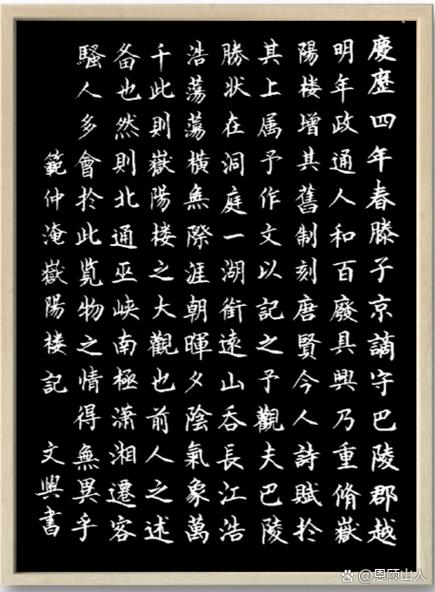 慶歷四年春滕子京謫守巴陵郡越
明年政通人和百廢具興乃重脩嶽
陽楼增其舊制刻唐賢今人詩賦於
其上属予作文以記之予觀夫巴陵
勝状在洞庭一湖銜遠山吞長江浩
浩蕩蕩橫無際涯朝暉夕陰氣象萬
千此則嶽陽楼之大觀也前人之述
备也然則北通巫峽南極潇湘遷客
騷人多會於此覧物之情得無異乎
範仲淹嶽陽楼記 文興書
@恩顾山人